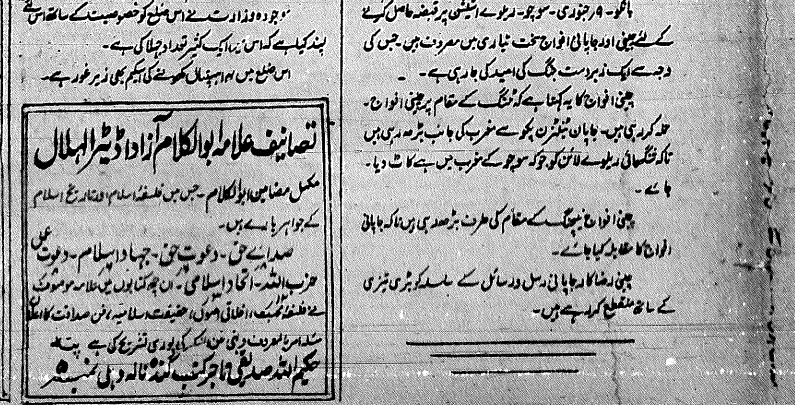 ہانکو۔ ۹ر جنوری۔ سوچو۔ ریلوے اسٹیشن پر قبضہ حاصل کرنے
کے لئے چینی اور جاپانی افواج سخت تیاری میں مصروف ہیں۔ جس کی
وجہ سے ایک زبردست جنگ کی امید کی جا رہی ہے۔
چینی افواج کا یہ کہنا ہے کہ ٹنگ کے مقام پر چینی افواج۔
حملہ کر رہی ہیں۔ جاپان ٹنٹرن پکو سے مغرب کی جانب بڑھ رہی ہیں
تاکہ شنگھائی ریلوے لائن کو جو کہ سوچو کے مغرب میں ہے کاٹ دیا۔
جائے۔
چینی افواج کے مقام کی طرف بڑھ رہی ہیں تاکہ جاپانی
افواج کا مقابلہ کیا جائے۔
چینی رضاکار جاپانی رسل و رسائل کے سلسلہ کو بڑی تیزی
کے ساتھ منقطع کر رہے ہیں۔
موجودہ وزارت نے اس ضلع کو خصوصیت کے ساتھ اس لئے
پسند کیا ہے کہ اس پر ایک کثیر تعداد چلا کی ہے۔
اس ضلع میں ہسپتال کھولنے کی اسکیم بھی زیر غور ہے۔
تصانیف علامہ ابوالکلام آزاد اڈیٹر الہلال
مکمل مضامین ابوالکلام۔ جس میں فلسفہ اسلام اور تاریخ اسلام
کے جواہر پارے ہیں۔
صدائے حق۔ دعوت حق۔ جہاد اسلام۔ دعوت عمل
حزب اللہ۔ اتحاد اسلامی۔ ان چھ کتابوں میں علامہ موصوف
نے فلسفہ اخلاقی اصول، حقیقت اسلامیہ، فن صداقت کا اعلان
مسئلہ امر بالمعروف ونہی عن المنکر کی پوری تشریح کی ہے پتہ
حکیم اللہ صدیقی تاجر کتب گندہ نالہ دہلی نمبر ۵